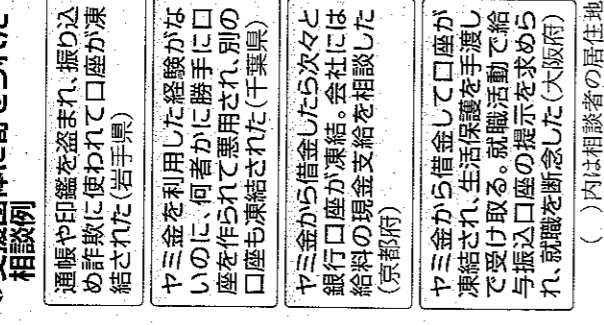 支援団体に寄せられた
相談例
通帳や印鑑を盗まれ、振り込
め詐欺に使われて口座が凍
結された(岩手県)
ヤミ金を利用した経験がな
いのに、何者かに勝手に口
座を作られて悪用され、別の
口座も凍結された(千葉県)
ヤミ金から借金したら次々と
銀行口座が凍結。会社には
給料の現金支給を相談した
(京都府)
ヤミ金から借金して口座が
凍結され、生活保護を手渡し
で受け取る。就職活動で給
与振込口座の提示を求めら
れ、就職を断念した(大阪府)
( )内は相談者の居住地